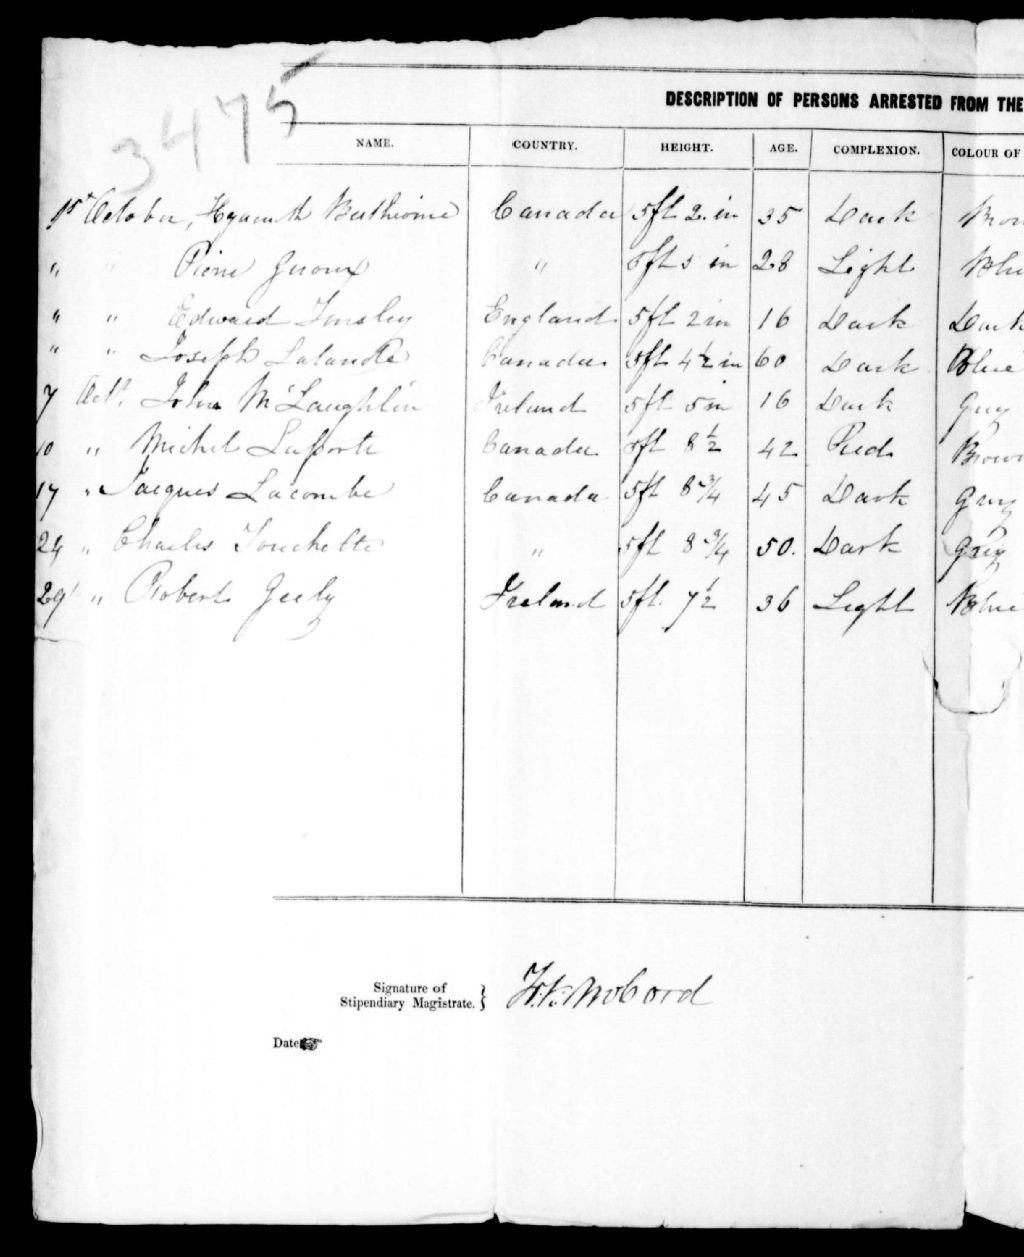 3475
DESCRIPTION OF PERSONS ARRESTED FROM THE
NAME. COUNTRY. HEIGHT. AGE. COMPLEXION. COLOUR OF
1st October, Hyacinth Canada 5ft 2. in 35 Dark Brow
" " Pierre Giroux " 5ft 5 in 28 Light Blu
" " Edward Tinsley England 5ft 2 in 16 Dark Dark
" " Joseph Lalande Canada 5ft 4½ in 60 Dark Blue
7 Octr John McLaughlin Ireland 5ft 5 in 16 Dark Grey
10 " Michel Laporte Canada 5ft 8½ 42 Red Brown
17 " Jacques Lacombe Canada 5ft 8¾ 45 Dark Grey
24 " Charles Touchette " 5ft 8¾ 50. Dark Grey
29 " Robert Ireland 5ft. 7½ 36 Light Blue
Signature of
Stipendiary Magistrate. } McCord
Date ☞